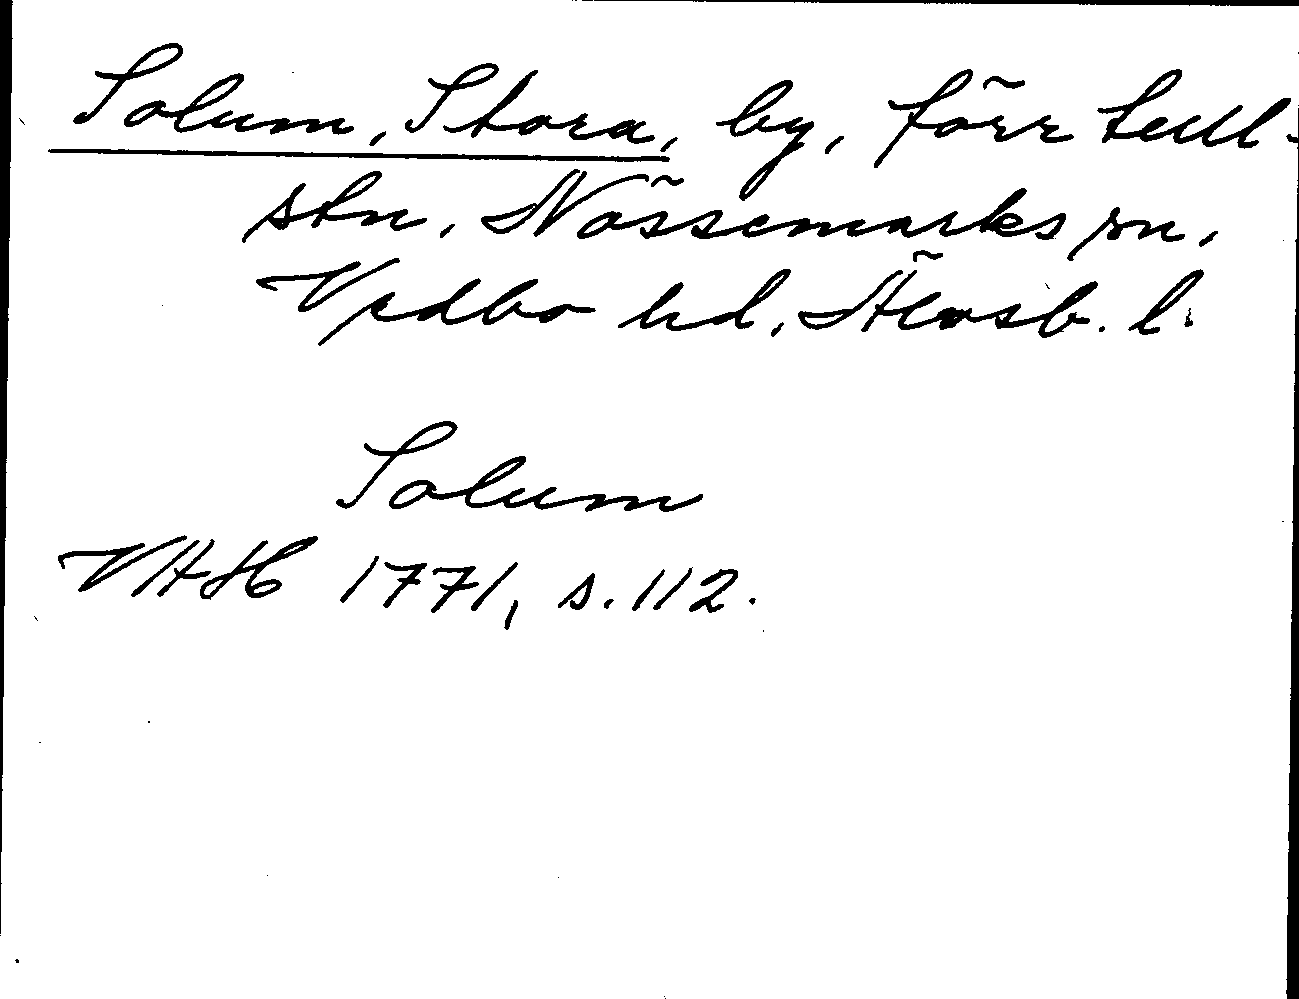 Solum, Stora, by, förr tull-
stn, Nössemarks sn,
Vedbo hd, Älvsb. l.
Solum
VHAH 1771, s. 112.